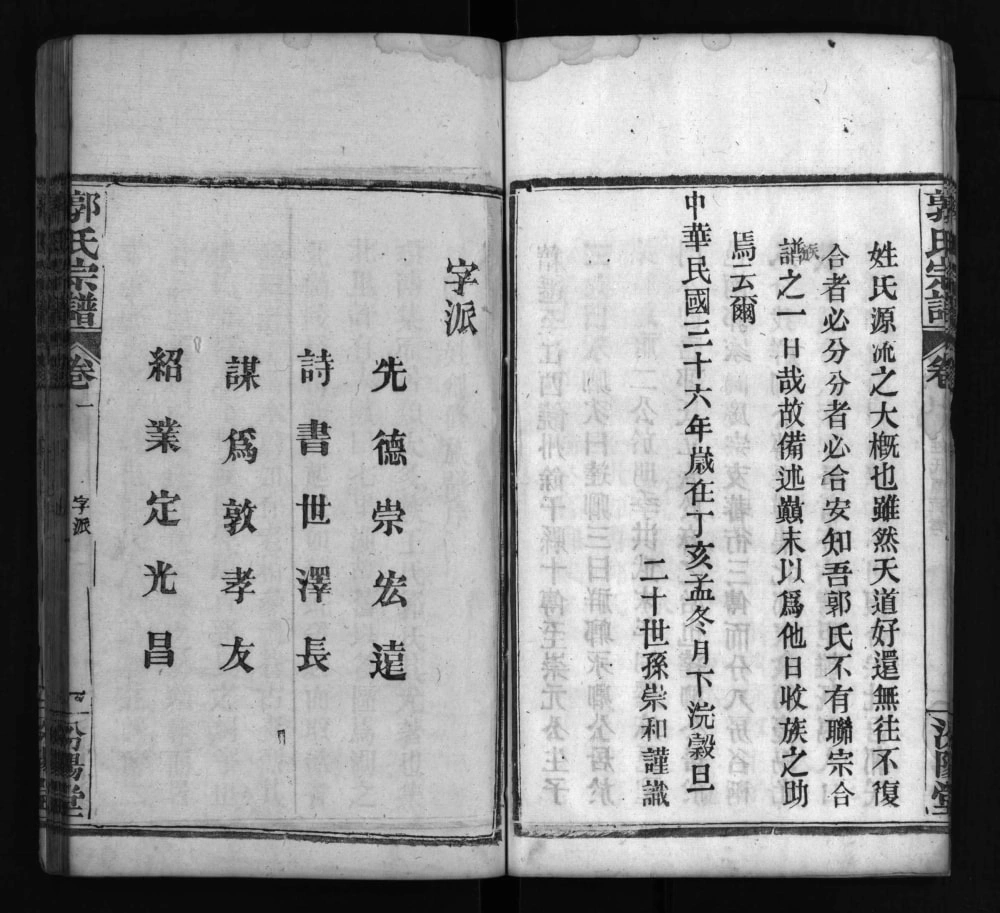 郭氏宗譜 卷
汾陽堂
姓氏源流之大概也雖然天道好還無往不復
合者必分分者必合安知吾郭氏不有聯宗合
族譜之一日哉故備述巔末以爲他日收族之助
焉云爾
中華民國三十六年歲在丁亥孟冬月下浣穀旦
二十世孫崇和謹識
字派
先德崇宏遠
詩書世澤長
謀爲敦孝友
紹業定光昌
郭氏宗譜 卷一 字派
汾陽堂